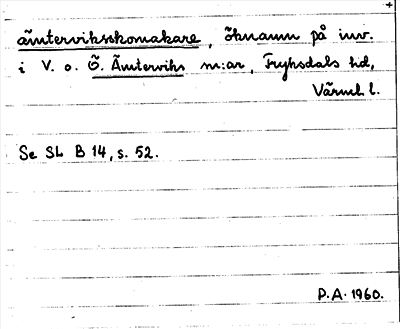 ämterviksskomakare, öknamn på inv.
i V. o. Ö. Ämterviks sn:ar, Fryksdals hd,
Värml. l.
Se SL B 14, s. 52.
P.A. 1960.